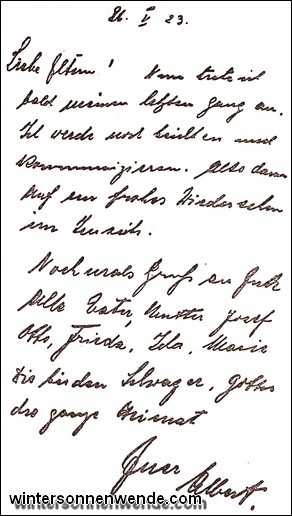 26. V 23.
Liebe Eltern! Nun trete ich
bald meinen letzten Gang an.
Ich werde noch beichten und
kommunizieren. Also dann
auf ein frohes Wiedersehn
im Jenseits.
Nochmals Gruß an Euch
Alle Vater, Mutter Josef
Otto, Frieda, Ida, Maria
Die beiden Schwager, Göttes
die ganze Heimat
Euer
Albert.
wintersonnenwende.com